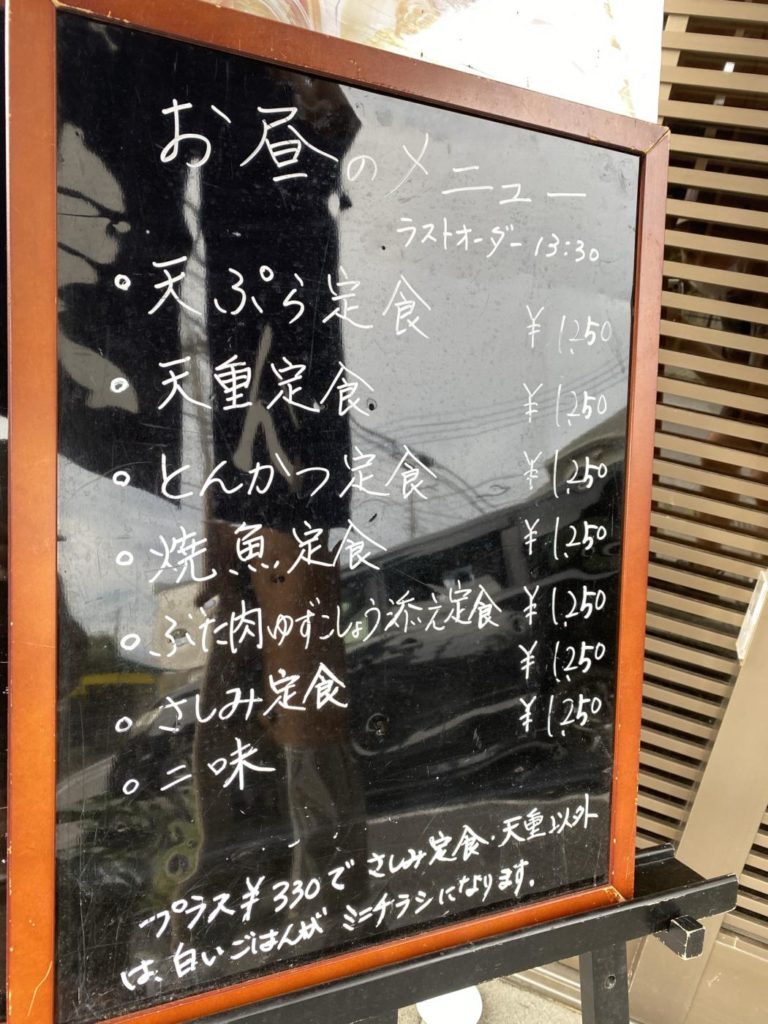 お昼のメニュー
ラストオーダー 13:30
。天ぷら定食 ¥1,250
。天重定食 ¥1,250
。とんかつ定食 ¥1,250
。焼魚定食 ¥1,250
。ぶた肉ゆずこしょう添え定食 ¥1,250
。さしみ定食 ¥1,250
。二味 ¥1,250
プラス¥330で さしみ定食・天重以外
は、白いごはんが ミニチラシになります。